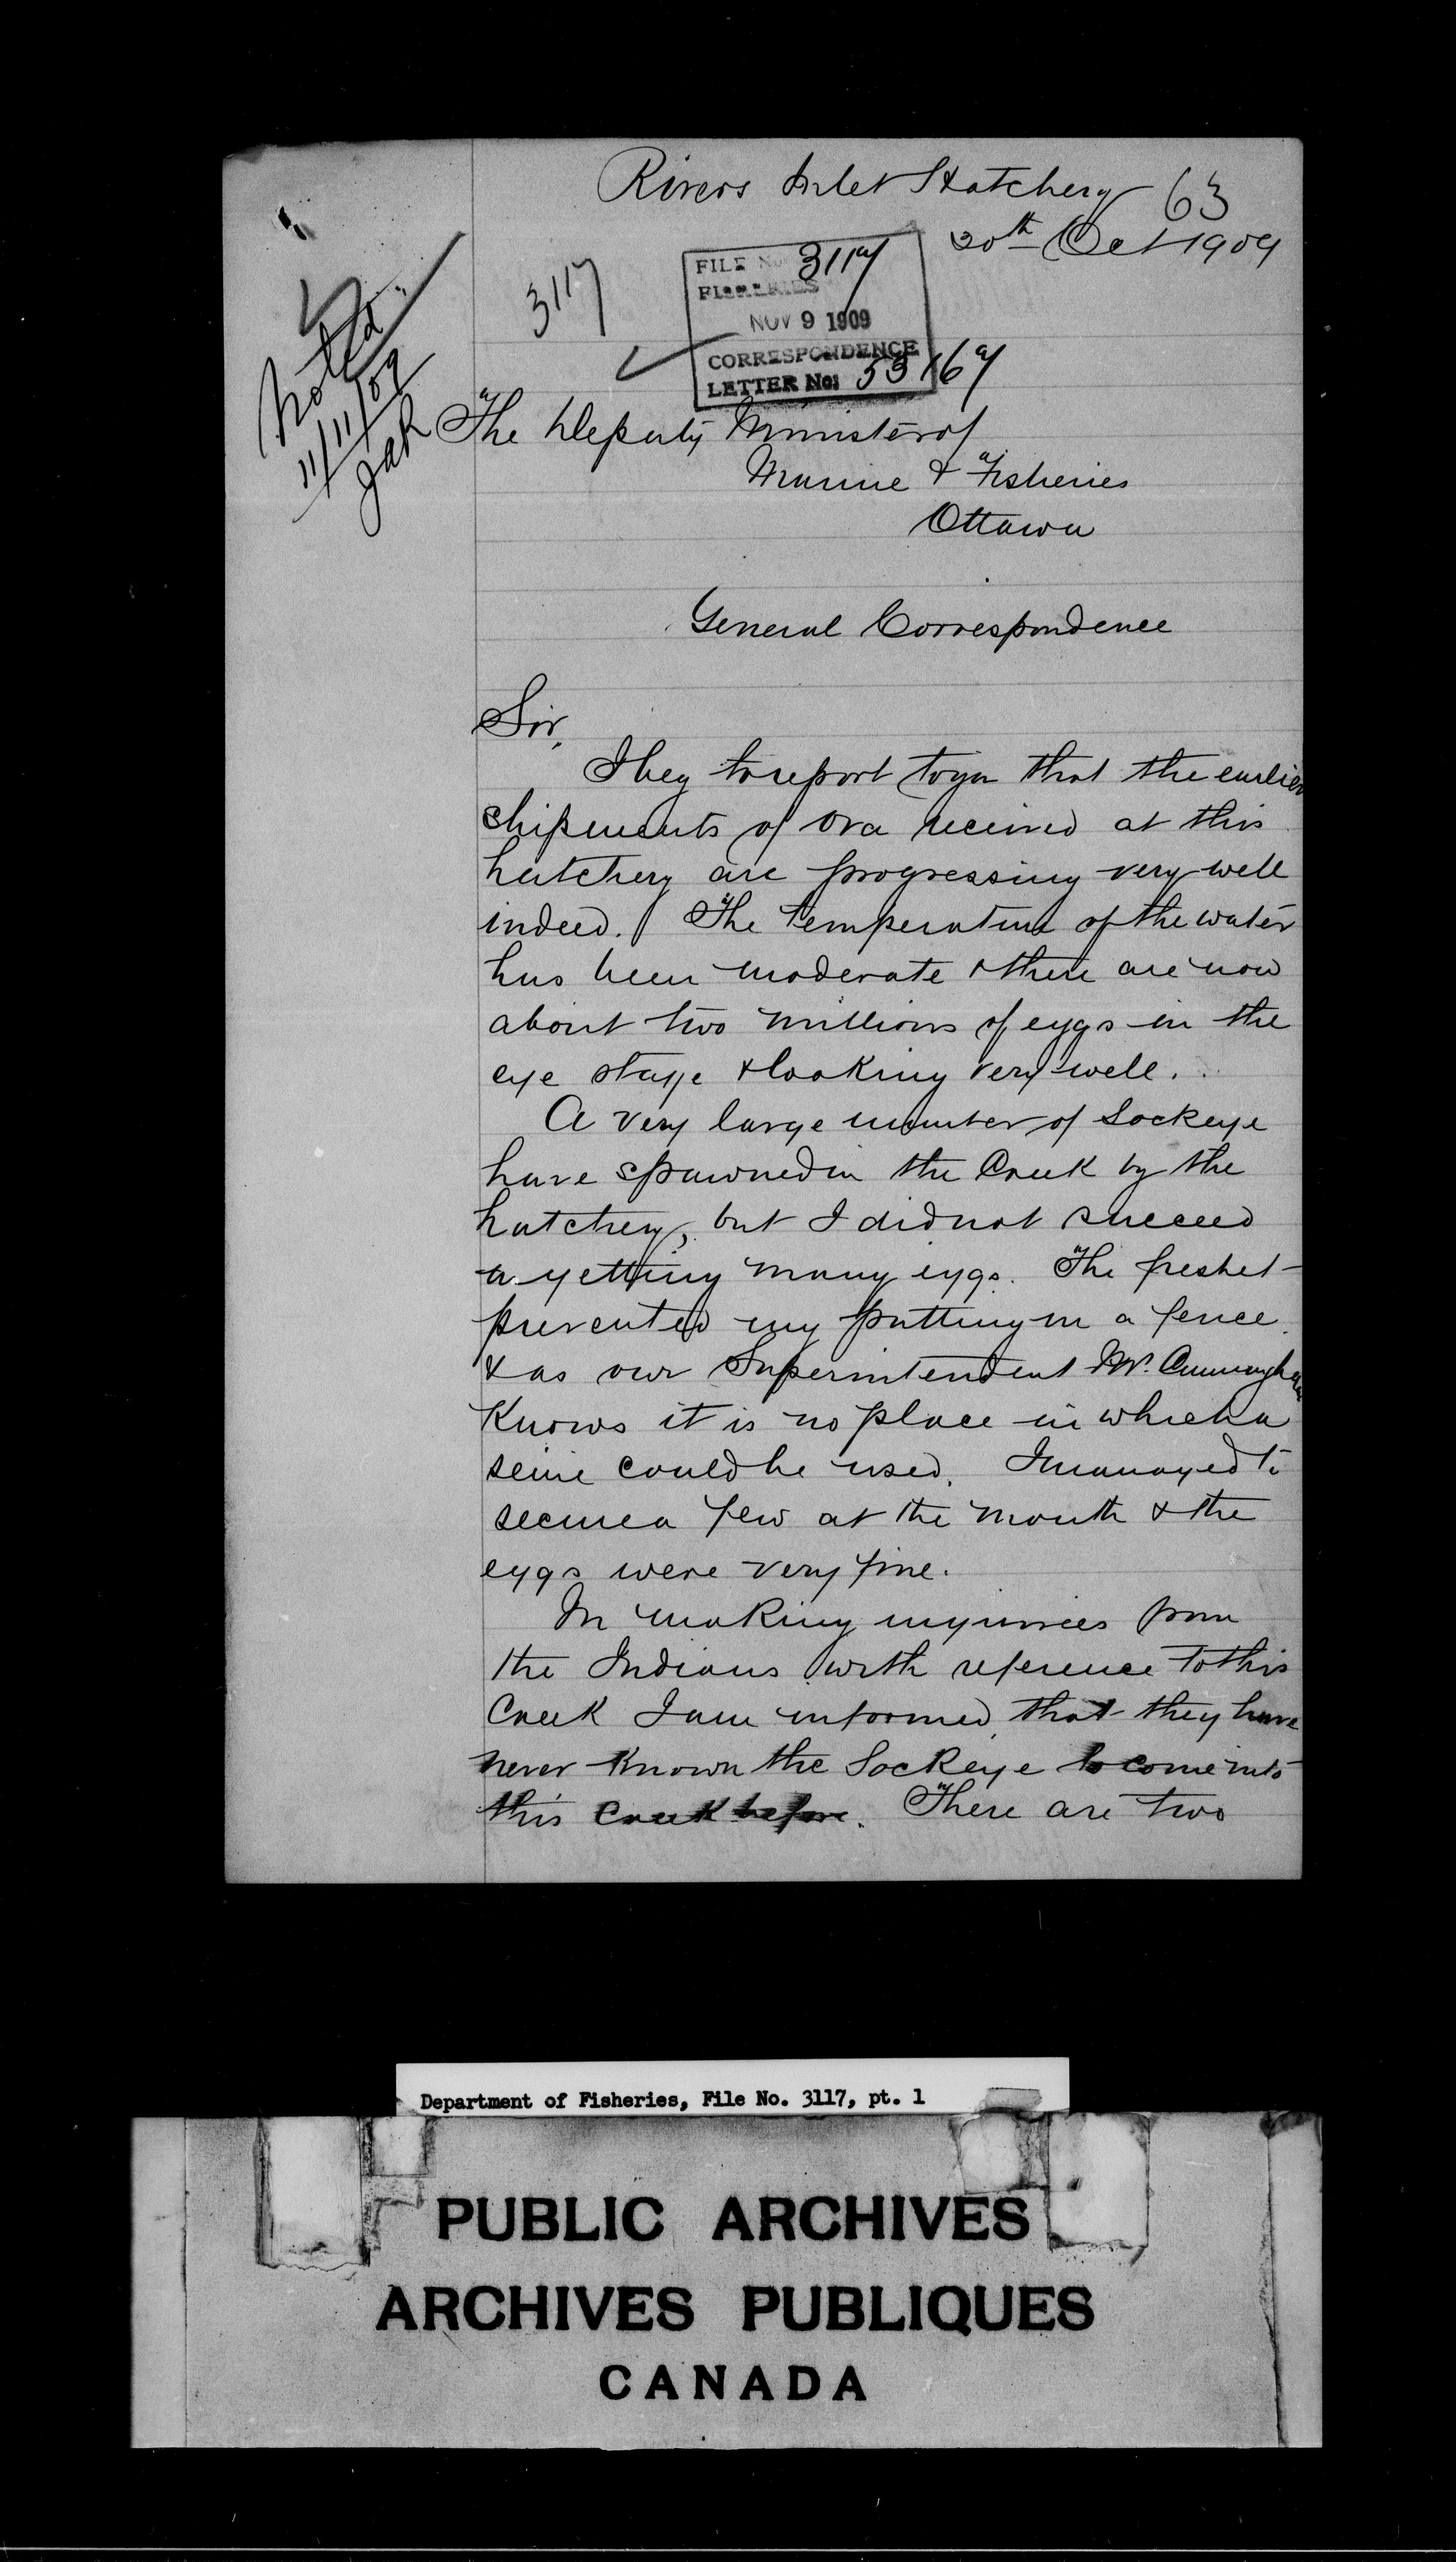 Rivers Inlet Hatchery 63
20th Oct 1909
3117
FILE No 3117
FISHERIES
NOV 9 1909
CORRESPONDENCE
LETTER No: 53167
Noted
11/11/09
The Deputy Minister of
Marine & Fisheries
Ottawa
General Correspondence
Sir,
I beg to report to you that the earlier
shipments of ova received at this
hatchery are progressing very well
indeed. The temperature of the water
has been moderate & there are now
about two millions of eggs in the
eye stage & looking very well.
A very large number of Sockeye
have spawned in the Creek by the
hatchery, but I did not succeed
in getting many eggs. The freshet
prevented my putting in a fence
& as our Superintendent Mr. Cunningham
Knows it is no place in which a
seine could be used. I managed to
secure a few at the mouth & the
eggs were very fine.
In making inquiries from
the Indians with reference to this
Creek I am informed that they have
never Known the Sockeye to come into
this Creek before. There are two
Department of Fisheries, File No. 3117, pt. 1
PUBLIC ARCHIVES
ARCHIVES PUBLIQUES
CANADA